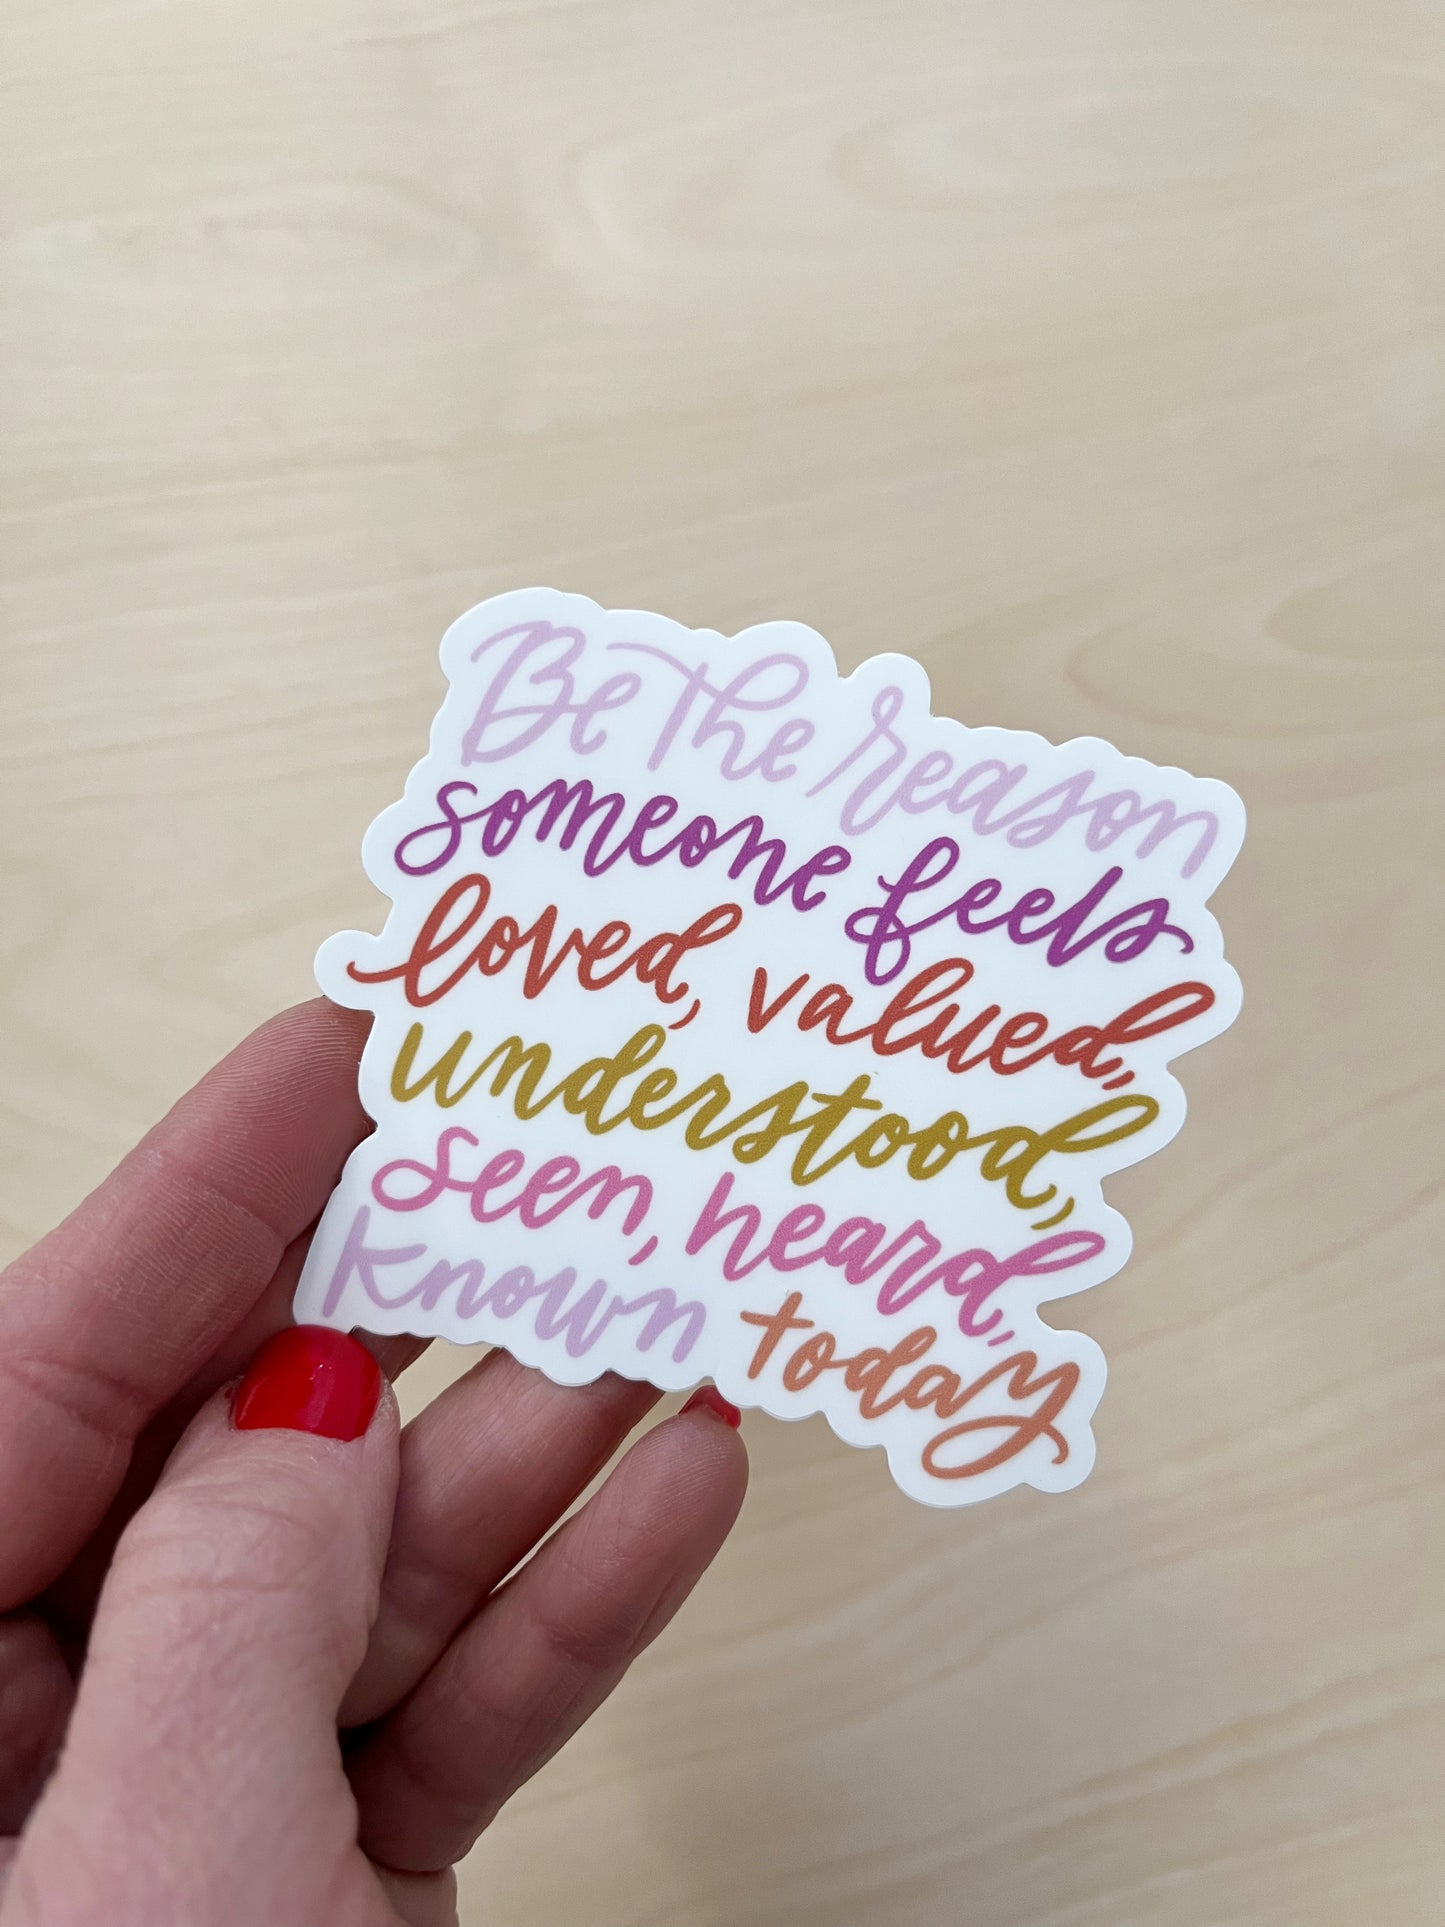 Be The reason
someone feels
loved, valued,
understood,
seen, heard,
known today